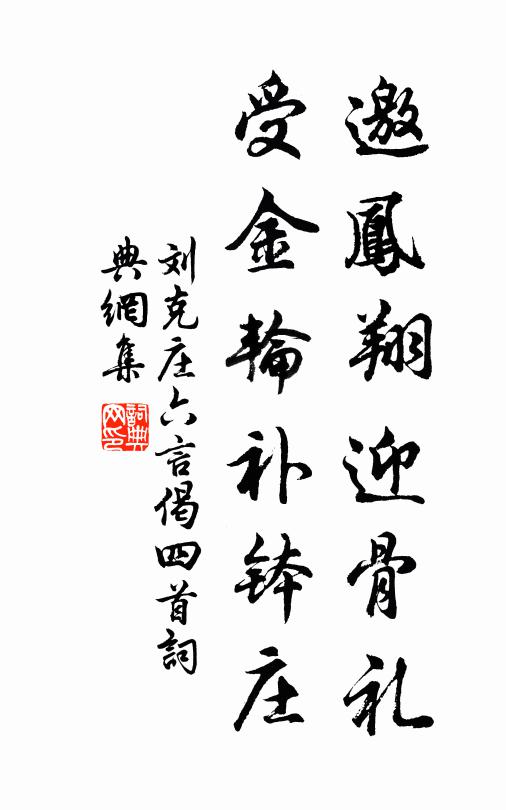 邀鳳翔迎骨礼
受金輪补鉢庄
刘克庄六言偈四首詞
典網集
詞典网印